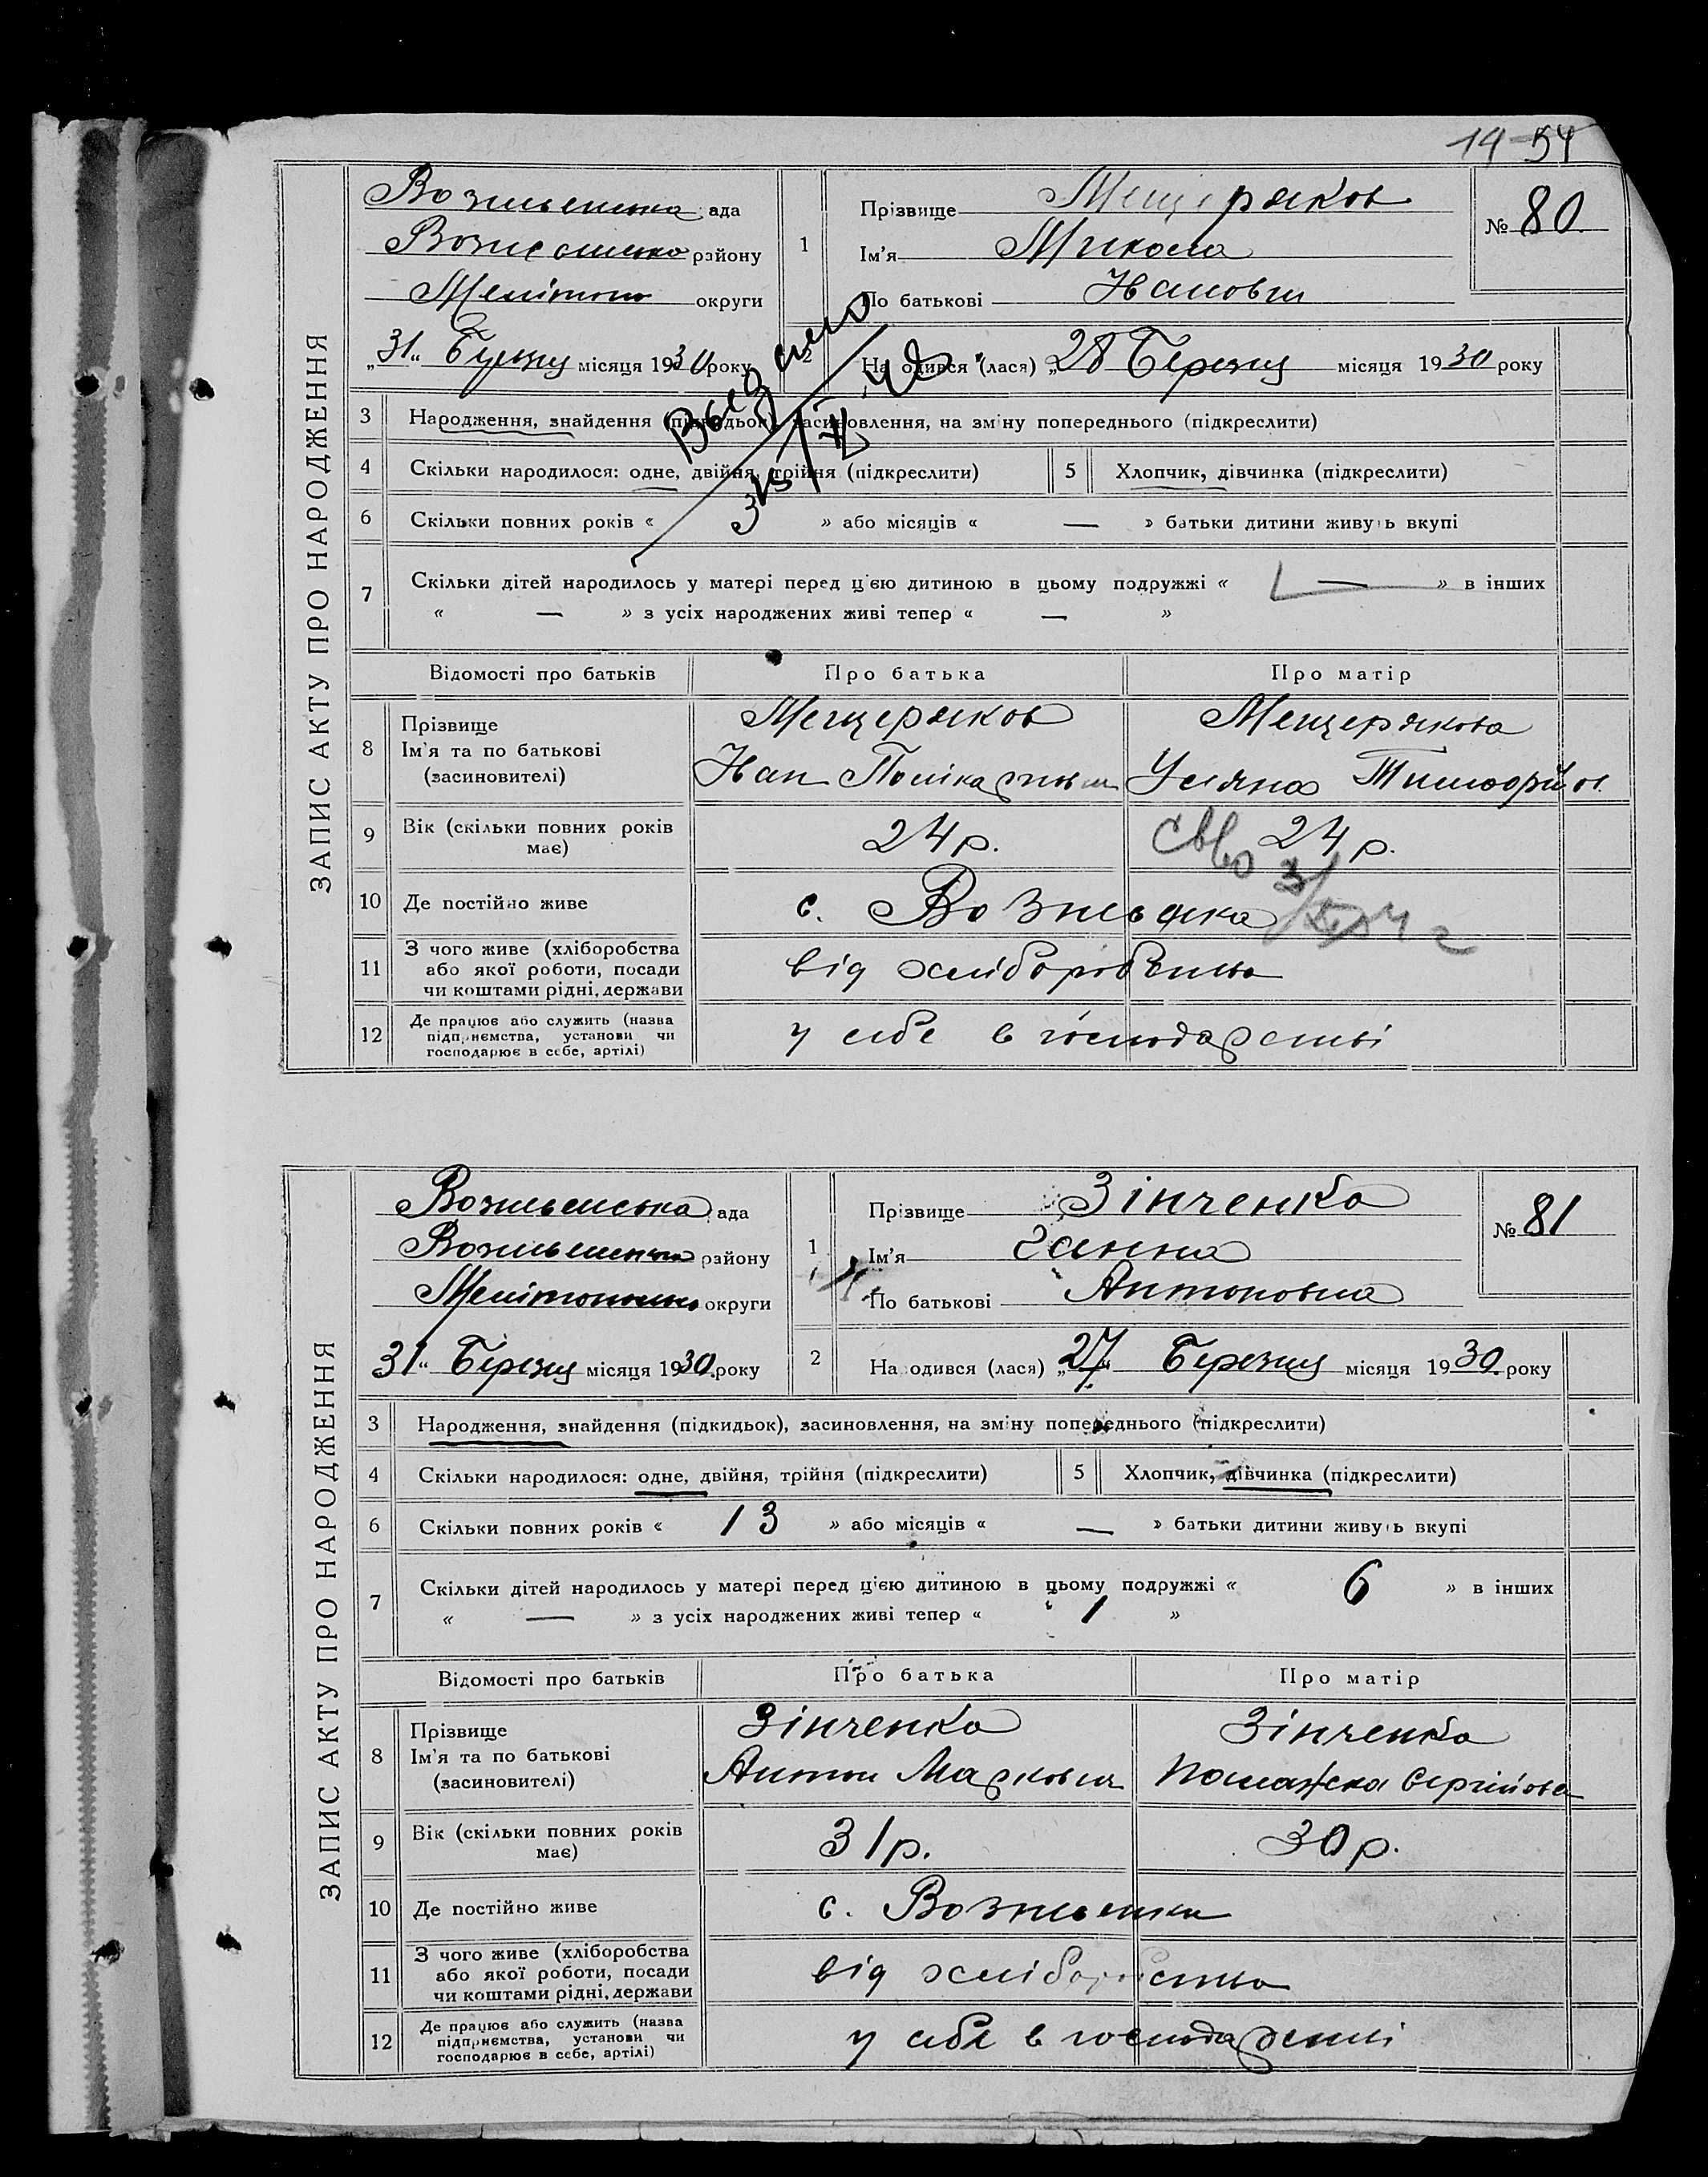 14 54
ЗАПИС АКТУ ПРО НАРОДЖЕННЯ
Вознесенська рада
района
округи
„31“ Березня місяця 1930 року
1
Прізвище Мещеряков
Ім'я Микола
По батькові Иванович
№ 80
2 Народився (лася) „28 Березня місяця 1930 року
3 Народження, знайдення (підкидьок), засиновлення, на зміну попереднього (підкреслити)
4 Скільки народилося: одне, двійня, трійня (підкреслити)
5 Хлопчик, дівчинка (підкреслити)
6 Скільки повних років « » або місяців « — » батьки дитини живуть вкупі
7 Скільки дітей народилось у матері перед цією дитиною в цьому подружжі « — » в інших
« — » з усіх народжених живі тепер « — »
Відомості про батьків Про батька Про матір
8 Прізвище Ім'я та по батькові (засиновителі)
Мещеряков Мещерякова
Иван Полікарпович Уляна Тимофіїв
9 Вік (скільки повних років має) 24 р. 24 р.
10 Де постійно живе с. Вознесенка
11 З чого живе (хліборобства або якої роботи, посади чи коштами рідні, держави від хліборобства
12 Де працює або служить (назва підприємства, установи чи господарює в себе, артілі) у себе в господарстві
ЗАПИС АКТУ ПРО НАРОДЖЕННЯ
Вознесенська рада
району
Мелітопольсько округи
31“ Березня місяця 1930 року
1
Прізвище Зінченко
Ім'я Ганна
По батькові Антоновна
№ 81
2 Народився (лася) „27“ Березня місяця 1930 року
3 Народження, знайдення (підкидьок), засиновлення, на зміну попереднього (підкреслити)
4 Скільки народилося: одне, двійня, трійня (підкреслити)
5 Хлопчик, дівчинка (підкреслити)
6 Скільки повних років « 13 » або місяців « — » батьки дитини живуть вкупі
7 Скільки дітей народилось у матері перед цією дитиною в цьому подружжі « 6 » в інших
« — » з усіх народжених живі тепер « 1 »
Відомості про батьків Про батька Про матір
8 Прізвище Ім'я та по батькові (засиновителі)
Зінченко Зінченко
Антон Маркович Сергійовна
9 Вік (скільки повних років має) 31 р. 30 р.
10 Де постійно живе с. Вознесенка
11 З чого живе (хліборобства або якої роботи, посади чи коштами рідні, держави від хліборобства
12 Де працює або служить (назва підприємства, установи чи господарює в себе, артілі) у себе в господарстві